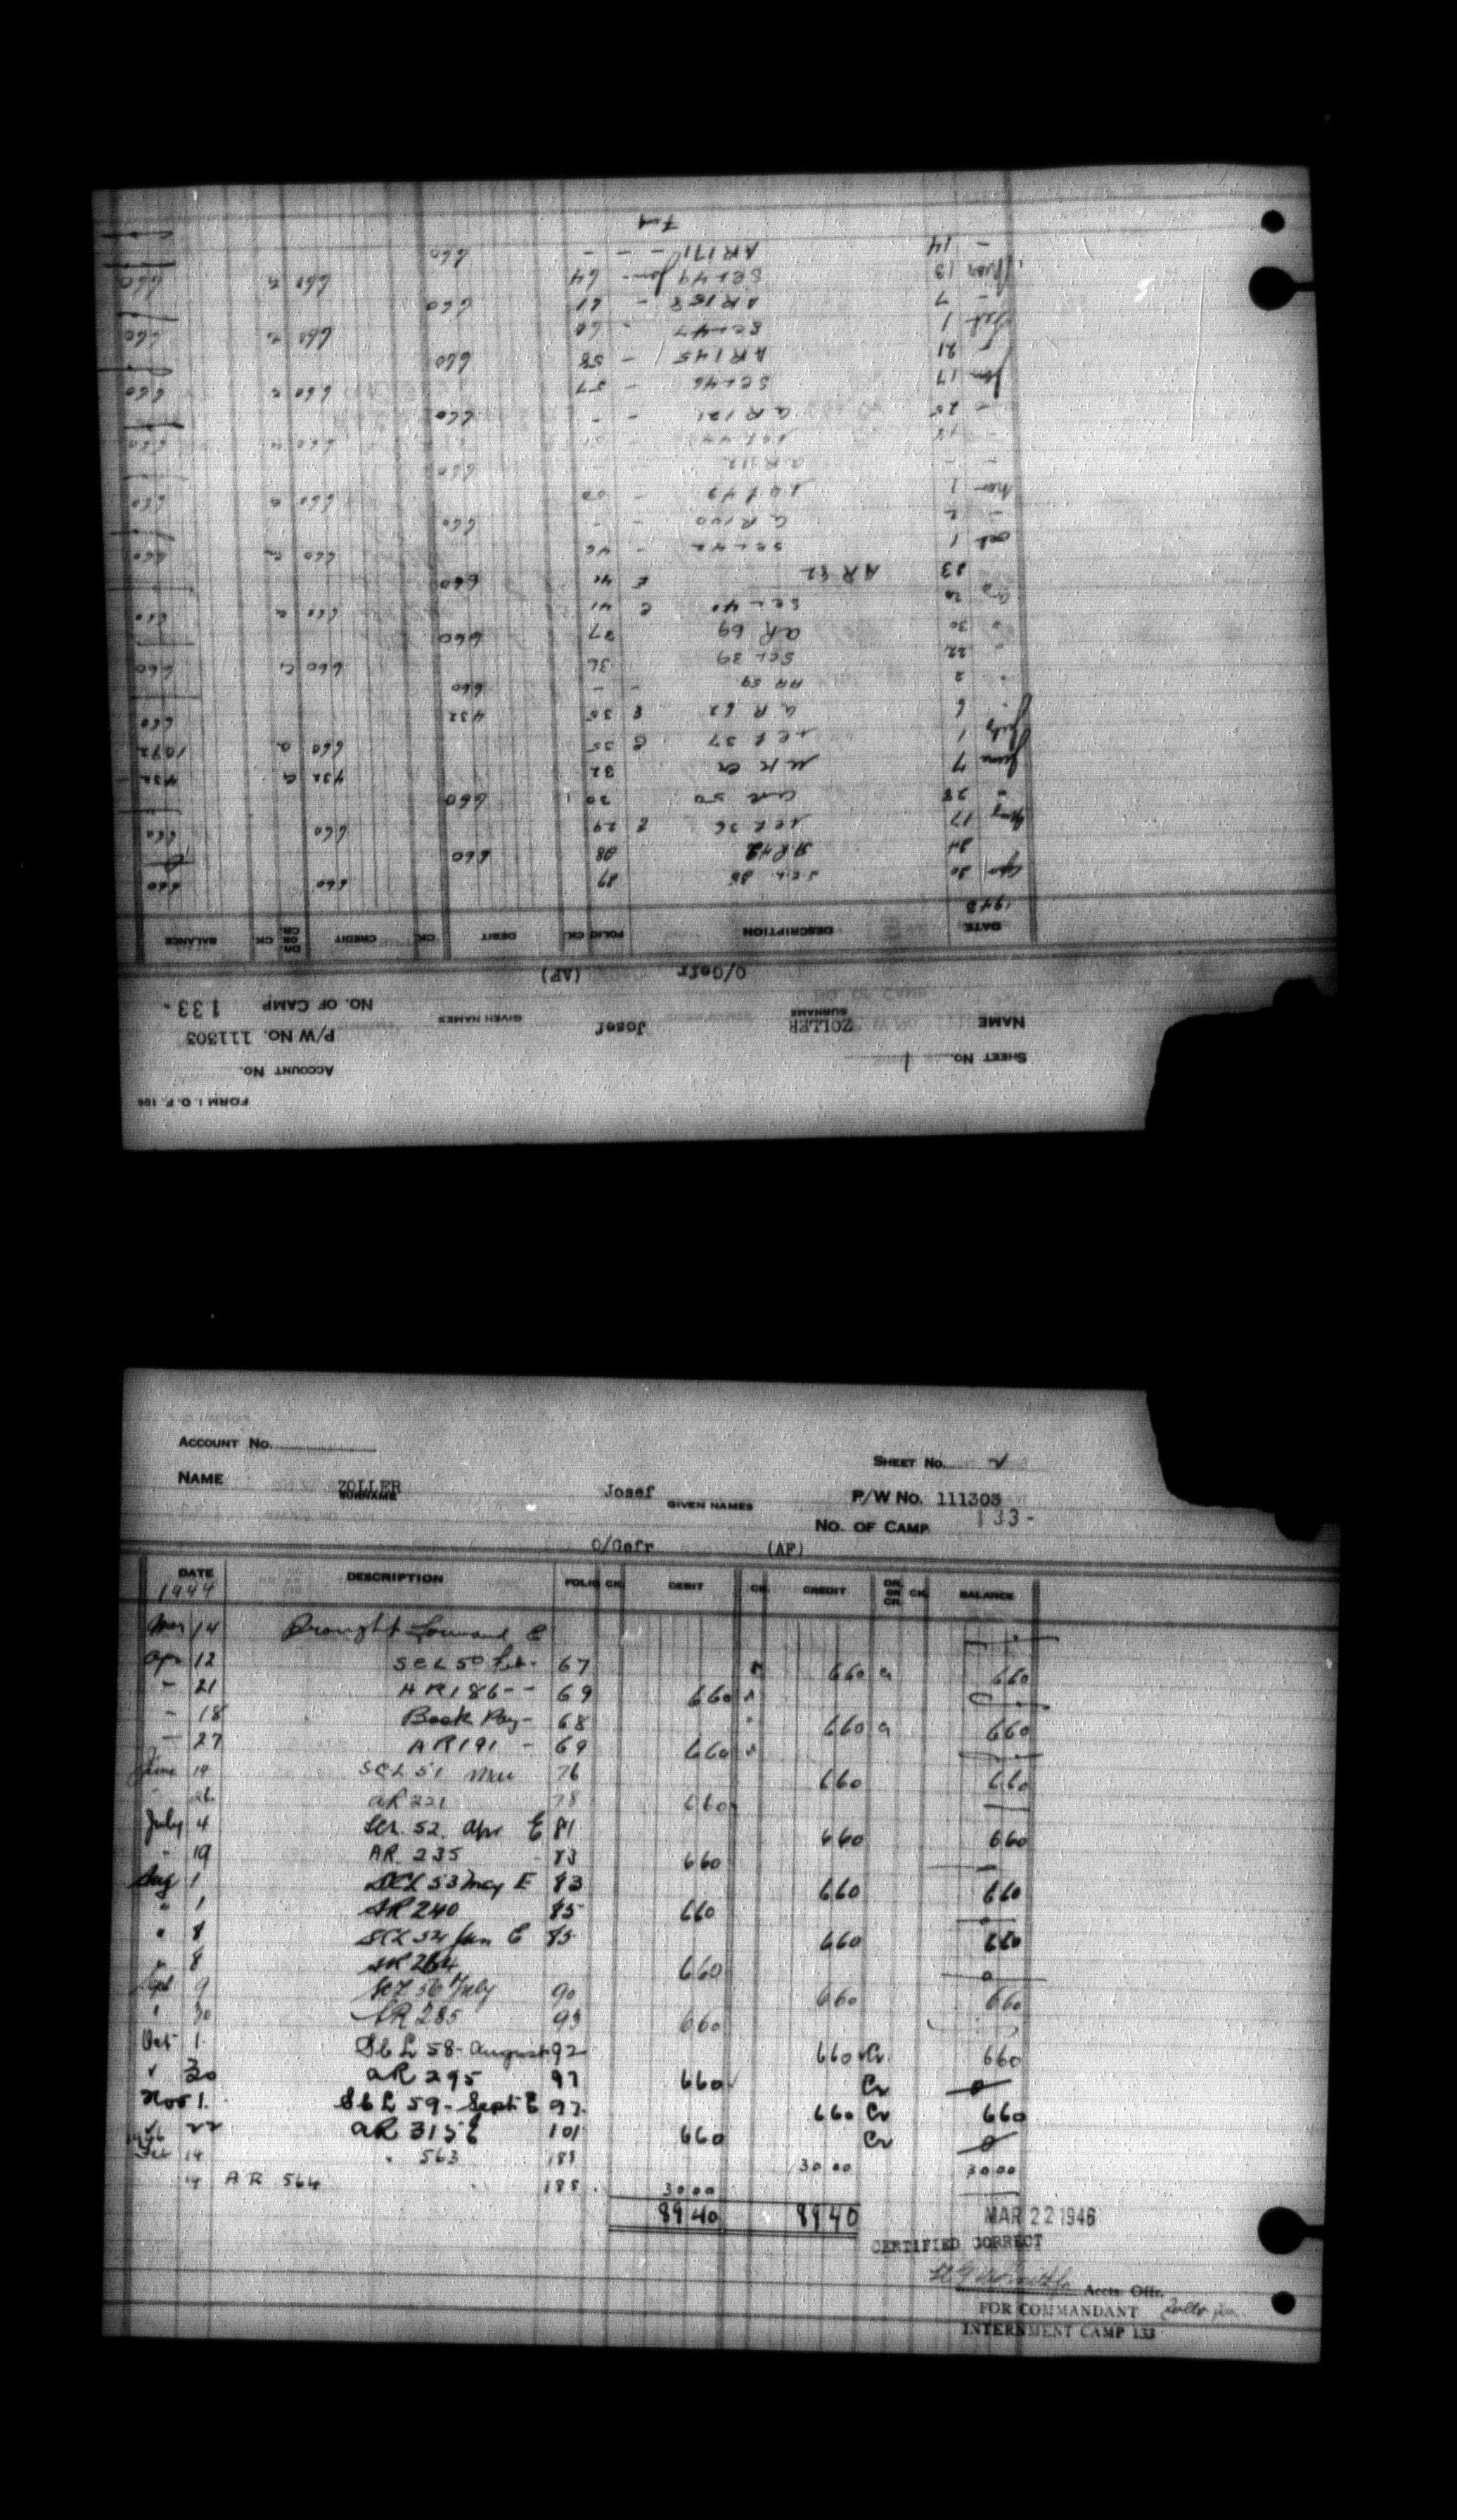 FORM I. O. F. 106
ACCOUNT NO.
SHEET NO. 1
P/W NO. 111303
NAME ZOLLER Josef
SURNAME GIVEN NAMES
NO. OF CAMP 133-
O/Gefr (AF)
DATE DESCRIPTION FOLIO CK. DEBIT CK. CREDIT DR. OR CR. CK. BALANCE
1943
30 27 660 660
24 AR 42 28 660
17 36 E 29 660 660
" 28 50 30 660
June 7 32 432 432
July 1 37 35 660 1092
6 AR 62 E 35 432 660
" 2 AR 59 - - 660
" 22 SCL 39 36 660 660
" 30 AR 69 37 660
20 SCL 40 E 41 660 660
23 AR 82 E 41 660
Oct 1 SCL 42 - 46 660 660
- 2 AR 100 - - 660
Nov 1 - 50 660 660
- - AR 112 660
- 18 660
- 25 AR 121 - - 660
Jan 17 SCL 46 - 57 660 660
21 AR 145 - 58 660
Feb 1 SCL 47 - 60 660 660
- 7 AR 158 - 61 660
Mar 13 SCL 49 Jan - 64 660 660
- 14 AR 171 - - - 660
Fwd
ACCOUNT NO.
SHEET NO. 2
NAME ZOLLER Josef
SURNAME GIVEN NAMES
P/W NO. 111303
NO. OF CAMP 133-
O/Gefr (AF)
DATE DESCRIPTION FOLIO CK. DEBIT CK. CREDIT DR. OR CR. CK. BALANCE
1944
Mar 14 Brought Forward E
Apr 12 SCL 50 Feb - 67 660 660
- 21 AR 186 - - 69 660
- 18 Book Pay - 68 660 660
- 27 AR 191 - 69 660
June 14 SCL 51 Mar 76 660 660
26 AR 221 78 660
July 4 52 Apr E 81 660 660
" 19 AR 235 83 660
Aug 1 SCL 53 May E 83 660 660
" 1 AR 240 85 660
" 8 SCL 54 Jun E 85 660 660
" 8 AR 264 660 0
Sept 9 56 July 90 660 660
" 30 AR 285 93 660
Oct 1 Sb L 58 - August 92 660 Cr. 660
" 30 AR 295 97 660 Cr 0
Nov 1. Sb L 59 - Sept E 97 660 Cr 660
22 AR 315 E 101 660 Cr 0
1946
Feb 14 " 563 188 30 00 30 00
14 AR 564 188 30 00
89 40 89 40
MAR 22 1946
CERTIFIED CORRECT
Accts. Offr.
FOR COMMANDANT
INTERNMENT CAMP 133